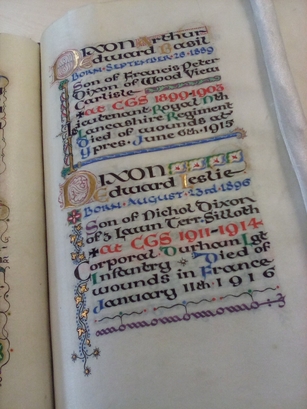 Dixon Arthur
Edward Basil
Born·September·28·1889
Son of Francis Peter
Dixon of Wood View
Carlisle
at CGS 1899-1903
Lieutenant Royal Nth
Lancashire Regiment
Died of wounds at
Ypres·June 6th·1915
Dixon
Edward Leslie
Born·August·23rd·1896
Son of Nichol Dixon
of 5 Lawn Terr. Silloth
at CGS 1911-1914
Corporal Durham Lgt
Infantry Died of
wounds in France
January 11th·1916